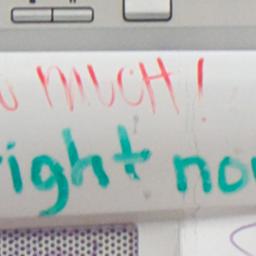 MUCH!
right no